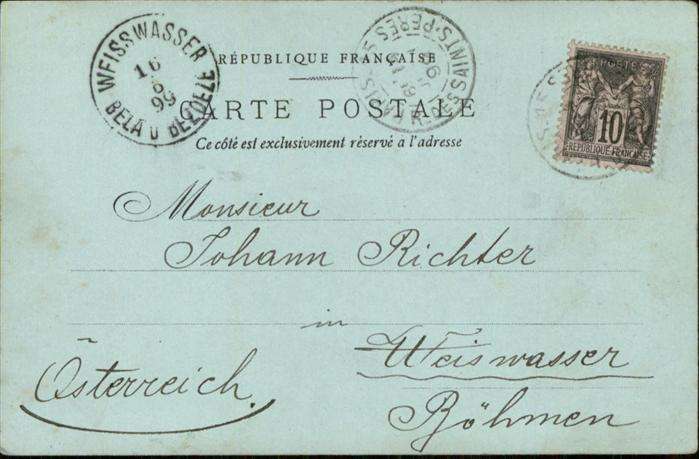 WEISSWASSER
16
5
99
BELA U BEZDEZE
RÉPUBLIQUE FRANÇAISE
CARTE POSTALE
Ce côté est exclusivement réservé à l'adresse
POSTES
10
REPUBLIQUE FRANÇAISE
Monsieur
Johann Richter
in
Weiswasser
Österreich.
Böhmen